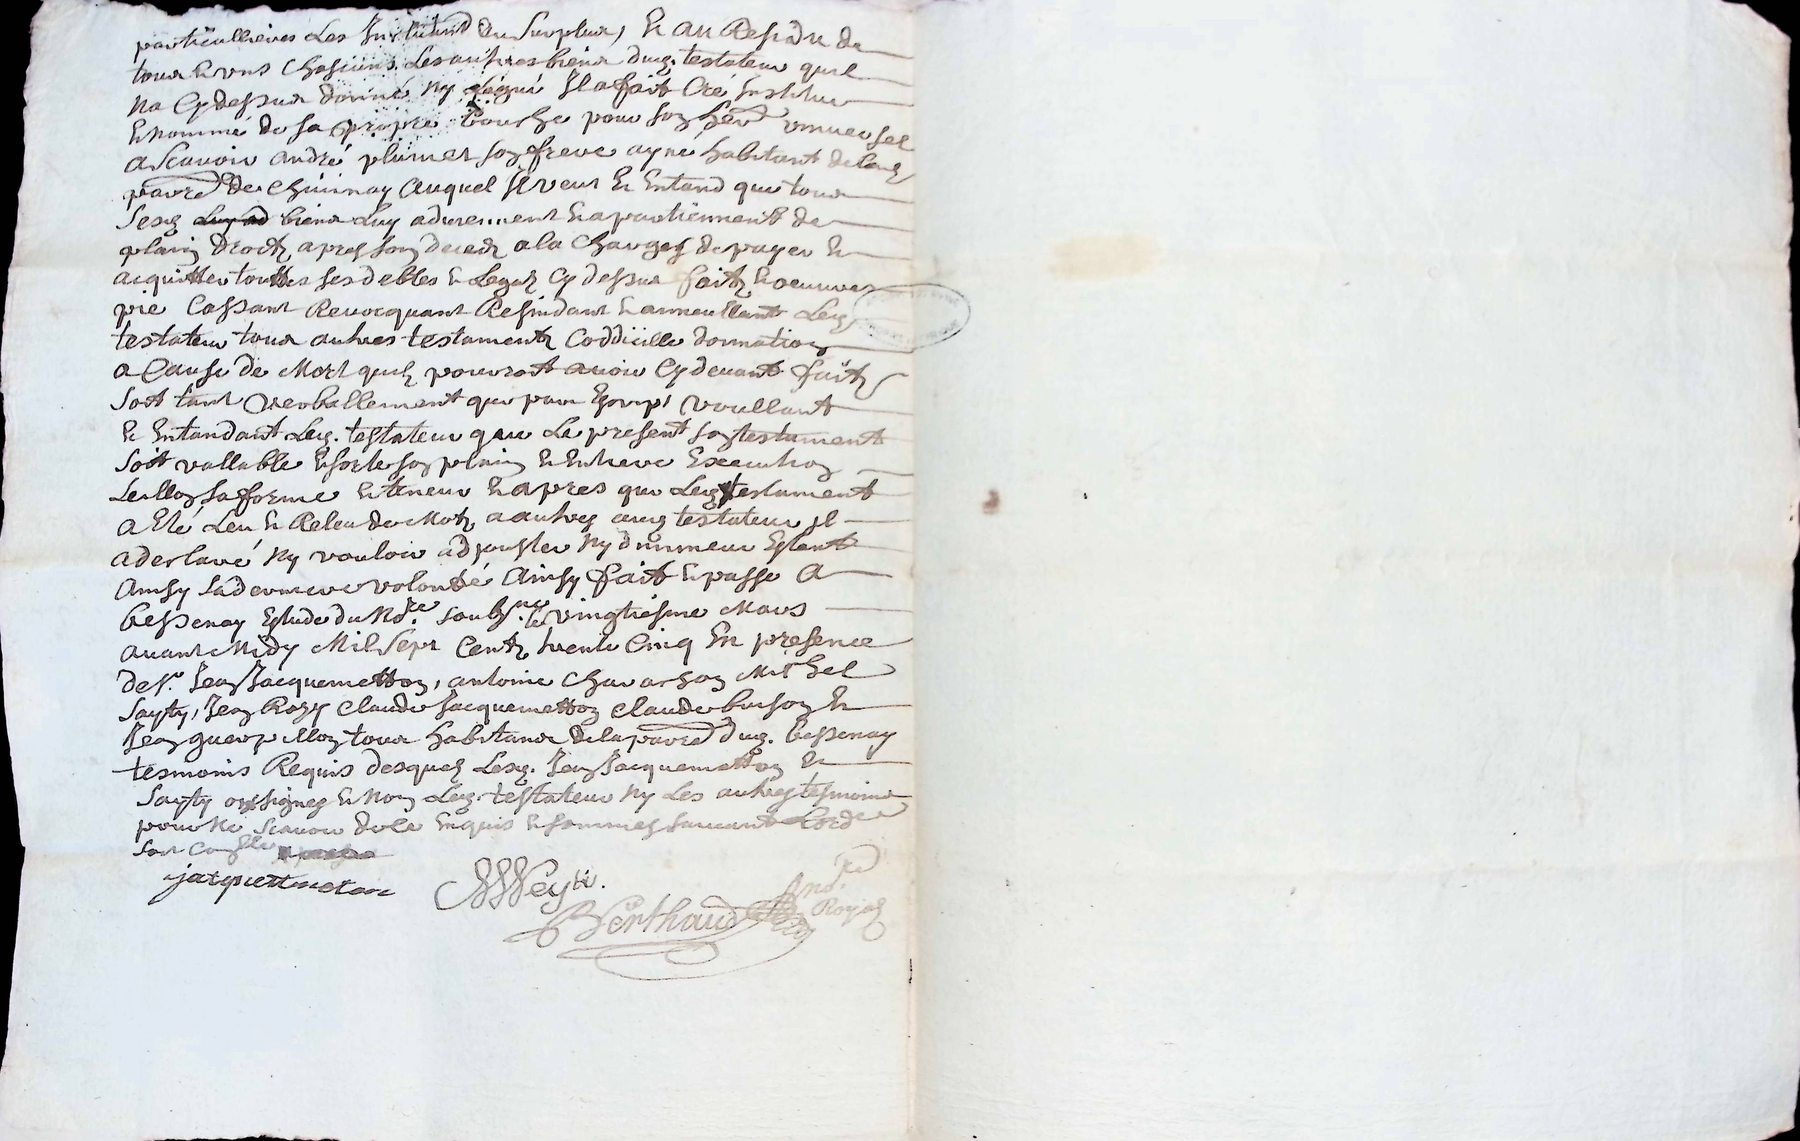 particullieres Les Instituant Au Surplus, Et Au Residu de
tous Et uns Chascuns Les autres biens dug. testateur quil
Na Cy dessus donné Ny Légué Il a fait Cré Institue
Et Nommé de sa propre bouche pour son herer universel
a scavoir André plumet son frere ayné habitant de lad.
parre de Chuinay Auquel Il veut Et Entand que tous
Sesd. biens Luy adviennent Et apartiennent de
plain droit apres son deced a la Charges de payer Et
acquitter touttes ses debtes Et Legats Cy dessus faits Et oeuvres
pie Cassant Revocquant Resindant Et anneullant Led.
testateur tous autres testaments Coddicille donnation
a Cause de Mort quil pourrot avoir Cy devant faits
Soit tant verballement que par Escrips voullant
Et Entandant Led. testateur que Le present son testament
Soit vallable Et sorte son plain Et Entiere Execution
Sellon sa forme Et teneur Et apres que Led. testament
A Eté Leu Et Releu de Mots a autres aud. testateur Il
a desclaré Ny vouloir adjouster Ny diminuer Estant
Ainsy sa derniere volonté Ainsy fait Et passé A
bessenay Estude du Nore soubsne. le vingtiesme Mars
avant Midy Mil sept Cents trente Cinq En presence
de sr. Jean Jacquemetton, antoine Chavasson Michel
Sayty, Jean Rozy Claude Jacquemetton Claude busson Et
Jean guerpillon tous habitans de la parre dud. bessenay
tesmoins Requis desquels Lesd. Jean Jacquemetton Et
Sayty ont signes Et Non Led. testateur Ny Les autres tesmoins
pour Ne scavoir de ce Enquis Et sommes suivant Lorde
Soit Conllé
jacquemeton
MSeyti.
Berthaud Nore Royal